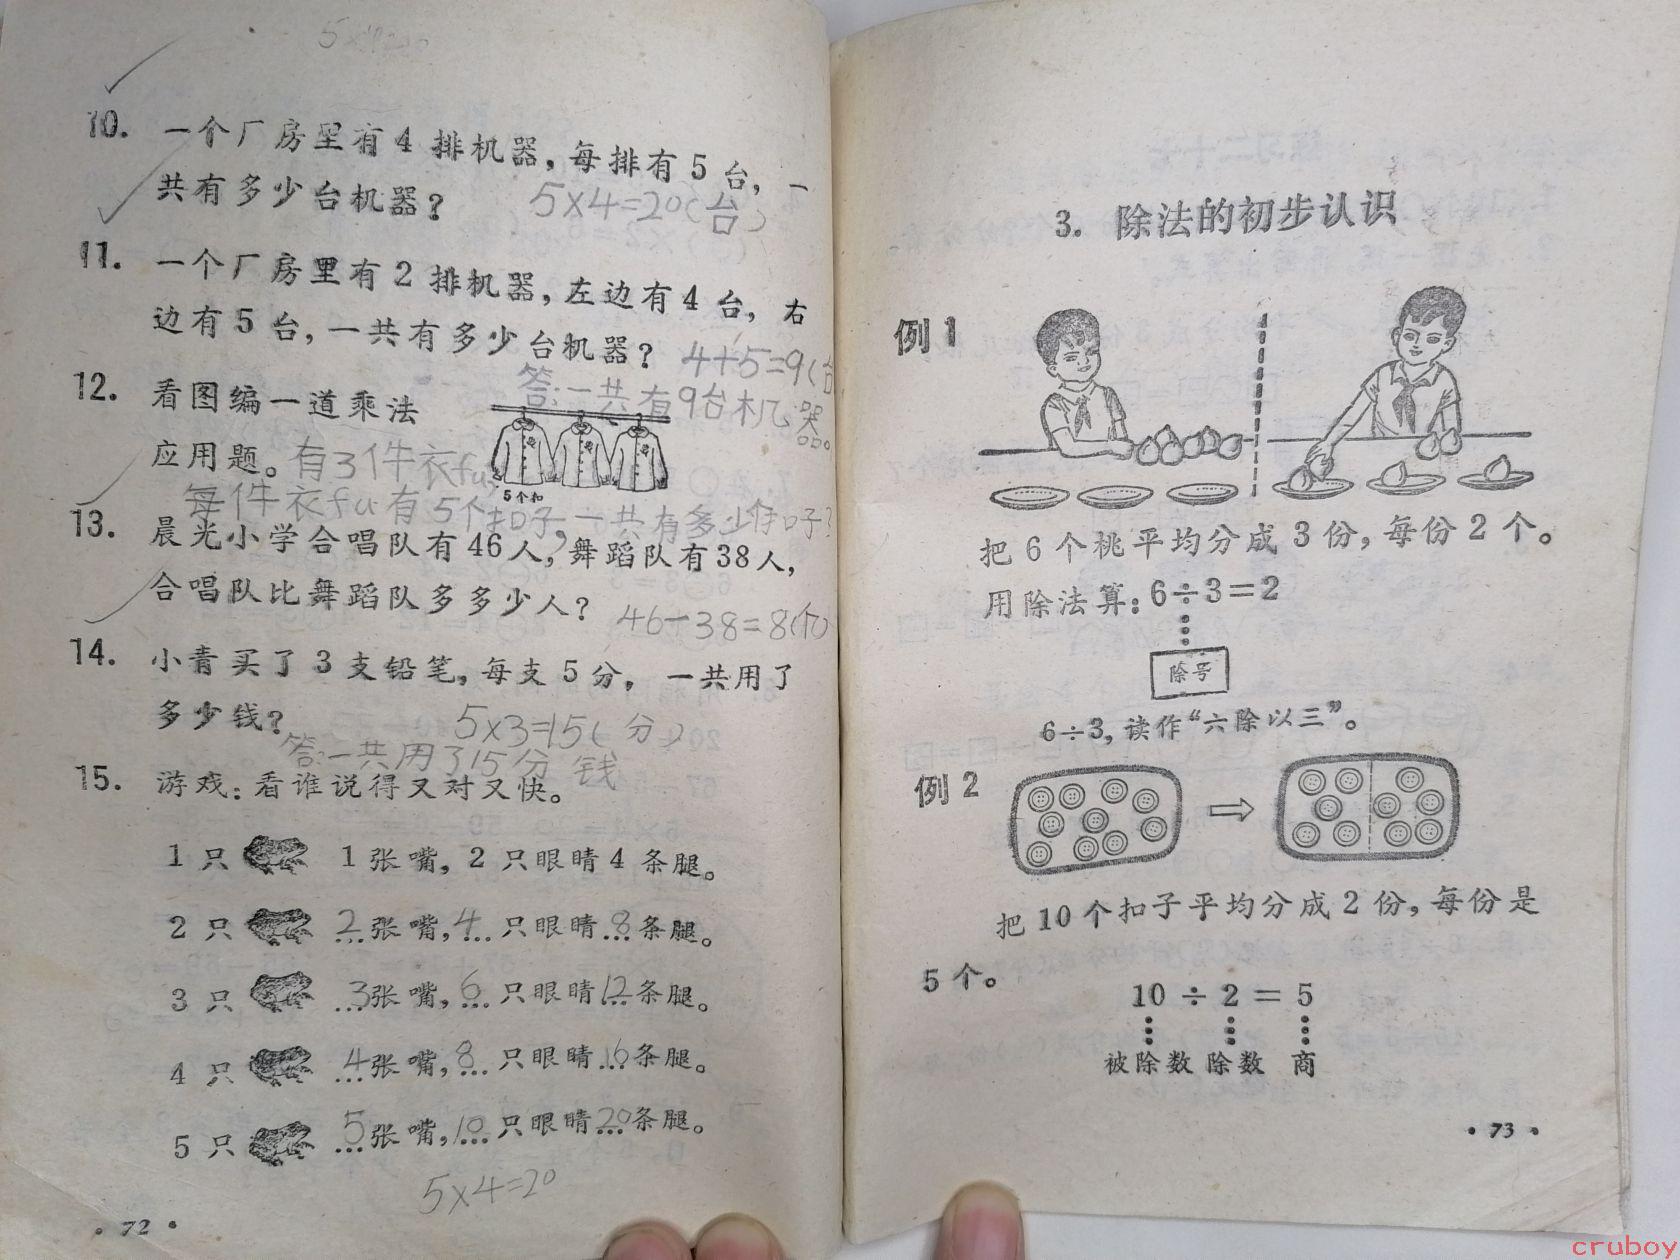 10. 一个厂房里有4排机器，每排有5台，一
共有多少台机器？
5×4=20(台)
11. 一个厂房里有2排机器，左边有4台，右
边有5台，一共有多少台机器？
4+5=9(台
答：一共有9台机器。
12. 看图编一道乘法
应用题。
5个扣
有3件衣fu，
每件衣fu有5个扣子，一共有多少个扣子？
13. 晨光小学合唱队有46人，舞蹈队有38人，
合唱队比舞蹈队多多少人？
46-38=8(个)
14. 小青买了3支铅笔，每支5分，一共用了
多少钱？
5×3=15(分)
答：一共用了15分钱
15. 游戏：看谁说得又对又快。
1只 1张嘴，2只眼睛4条腿。
2只 2张嘴，4只眼睛8条腿。
3只 3张嘴，6只眼睛12条腿。
4只 4张嘴，8只眼睛16条腿。
5只 5张嘴，10只眼睛20条腿。
5×4=20
·72·
3. 除法的初步认识
例1
把6个桃平均分成3份，每份2个。
用除法算：6÷3=2
除号
6÷3，读作“六除以三”。
例2
把10个扣子平均分成2份，每份是
5个。
10÷2=5
被除数 除数 商
·73·
cruboy